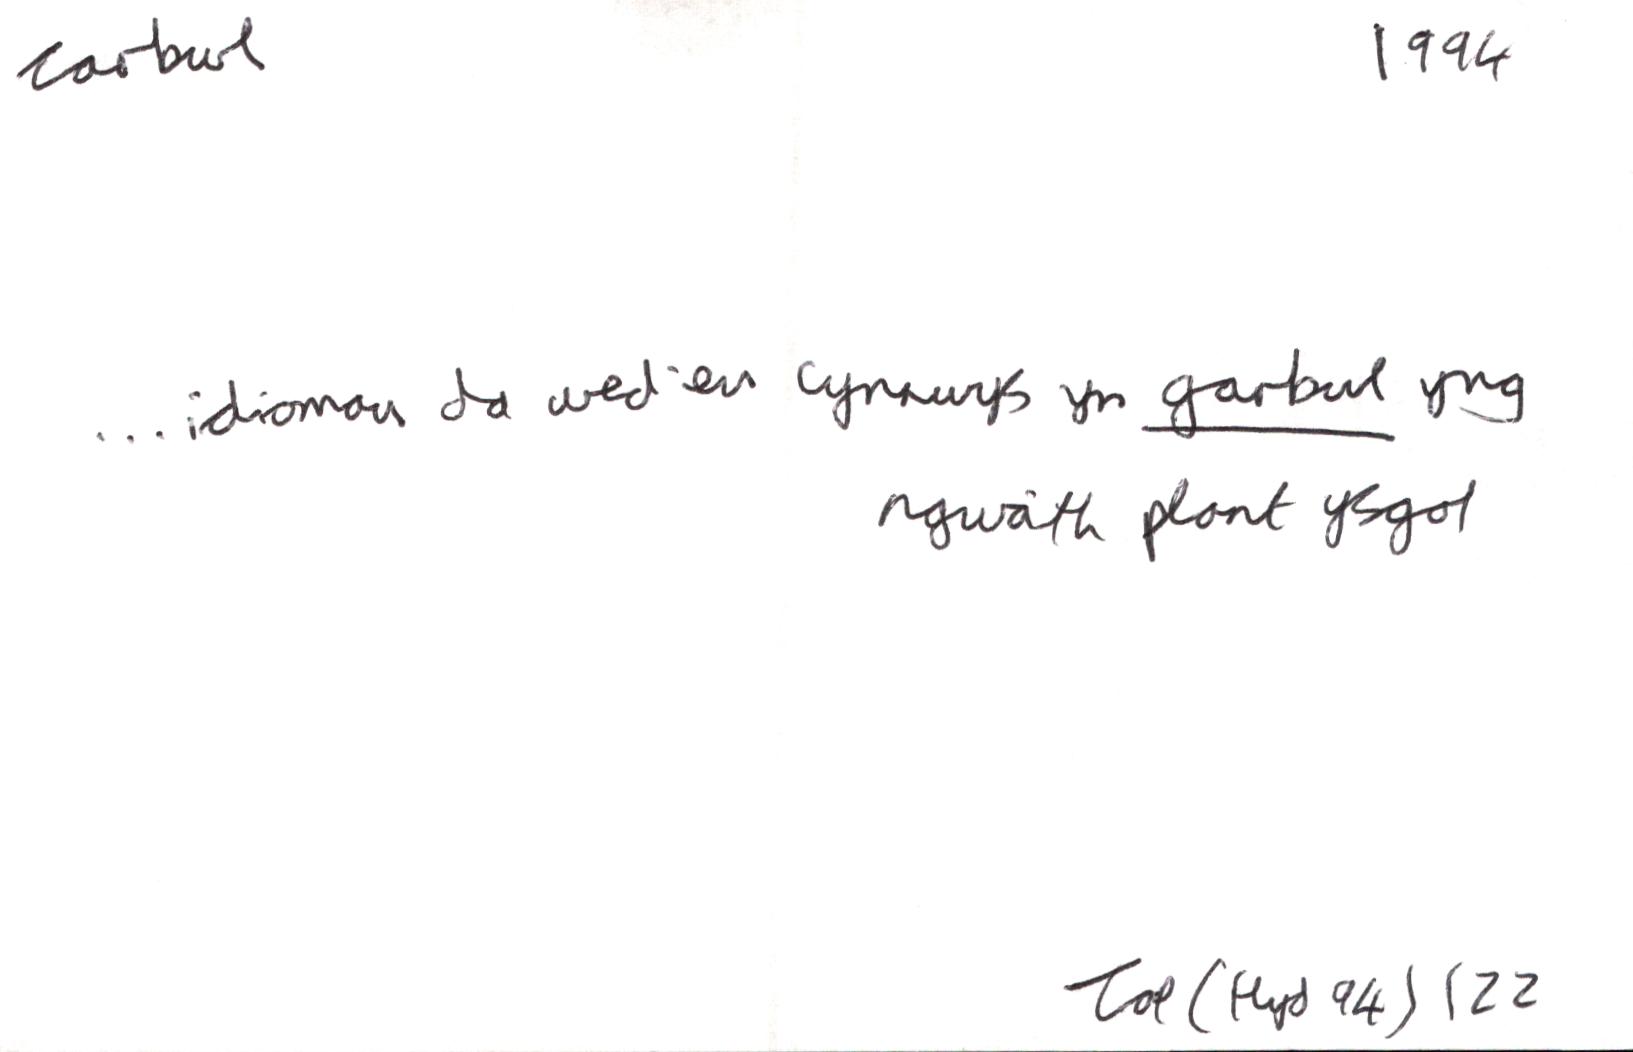 carbwl 1994
...idiomau da wedi'eu cynnwys yn garbwl yng
ngwaith plant ysgol
(Hyd 94) 122